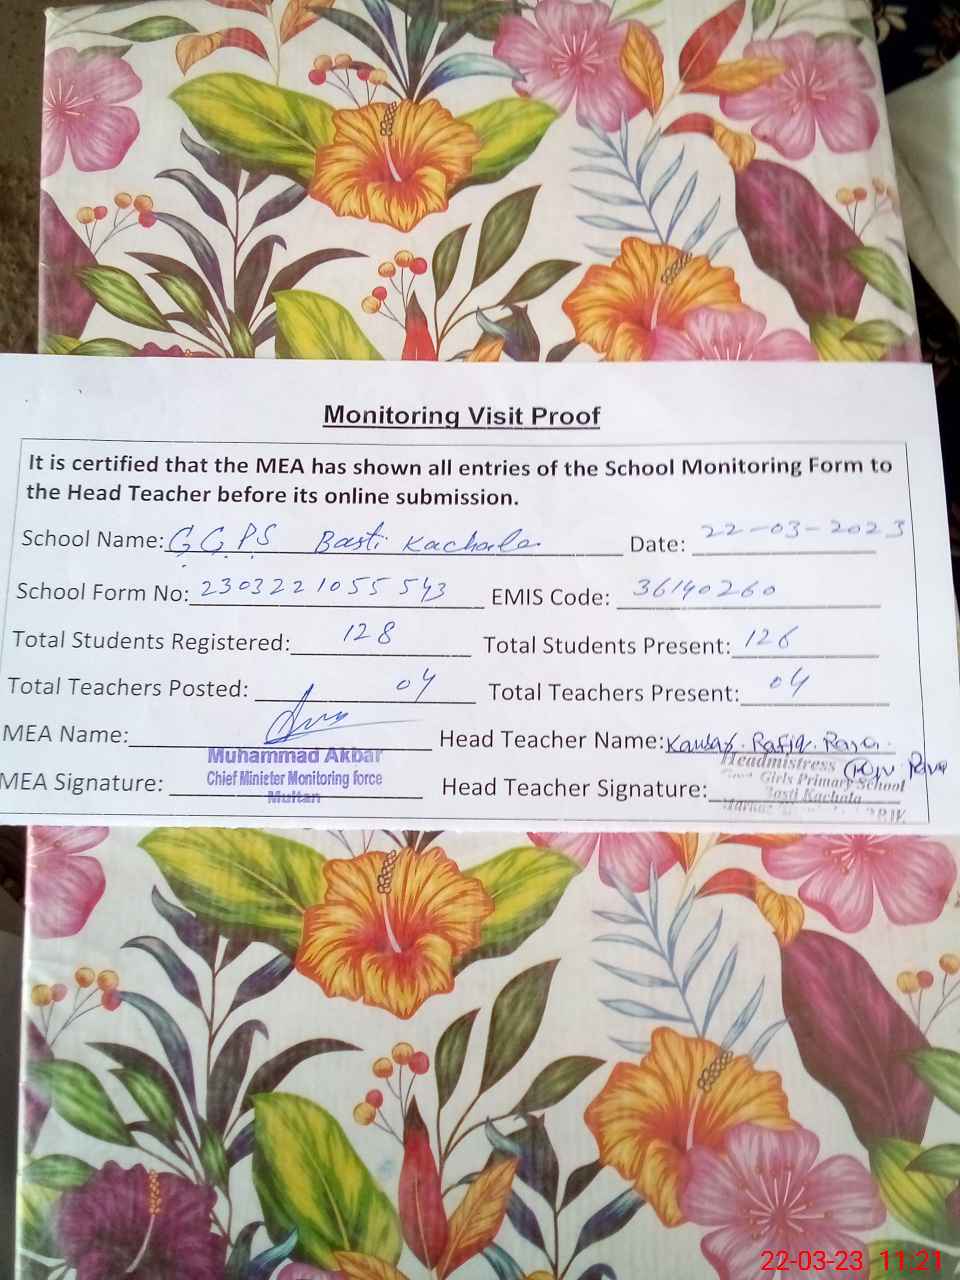 Monitoring Visit Proof
It is certified that the MEA has shown all entries of the School Monitoring Form to
the Head Teacher before its online submission.
School Name: G.G.P.S Basti Kachala Date: 22-03-2023
School Form No: 2303221055543 EMIS Code: 36140260
Total Students Registered: 128 Total Students Present: 126
Total Teachers Posted: 04 Total Teachers Present: 04
MEA Name: Head Teacher Name: Rafiq
Muhammad Akbar Headmistress
MEA Signature: Chief Minister Monitoring force Head Teacher Signature: Girls Primary School
Multan Basti Kachala
Markaz
22-03-23 11:21